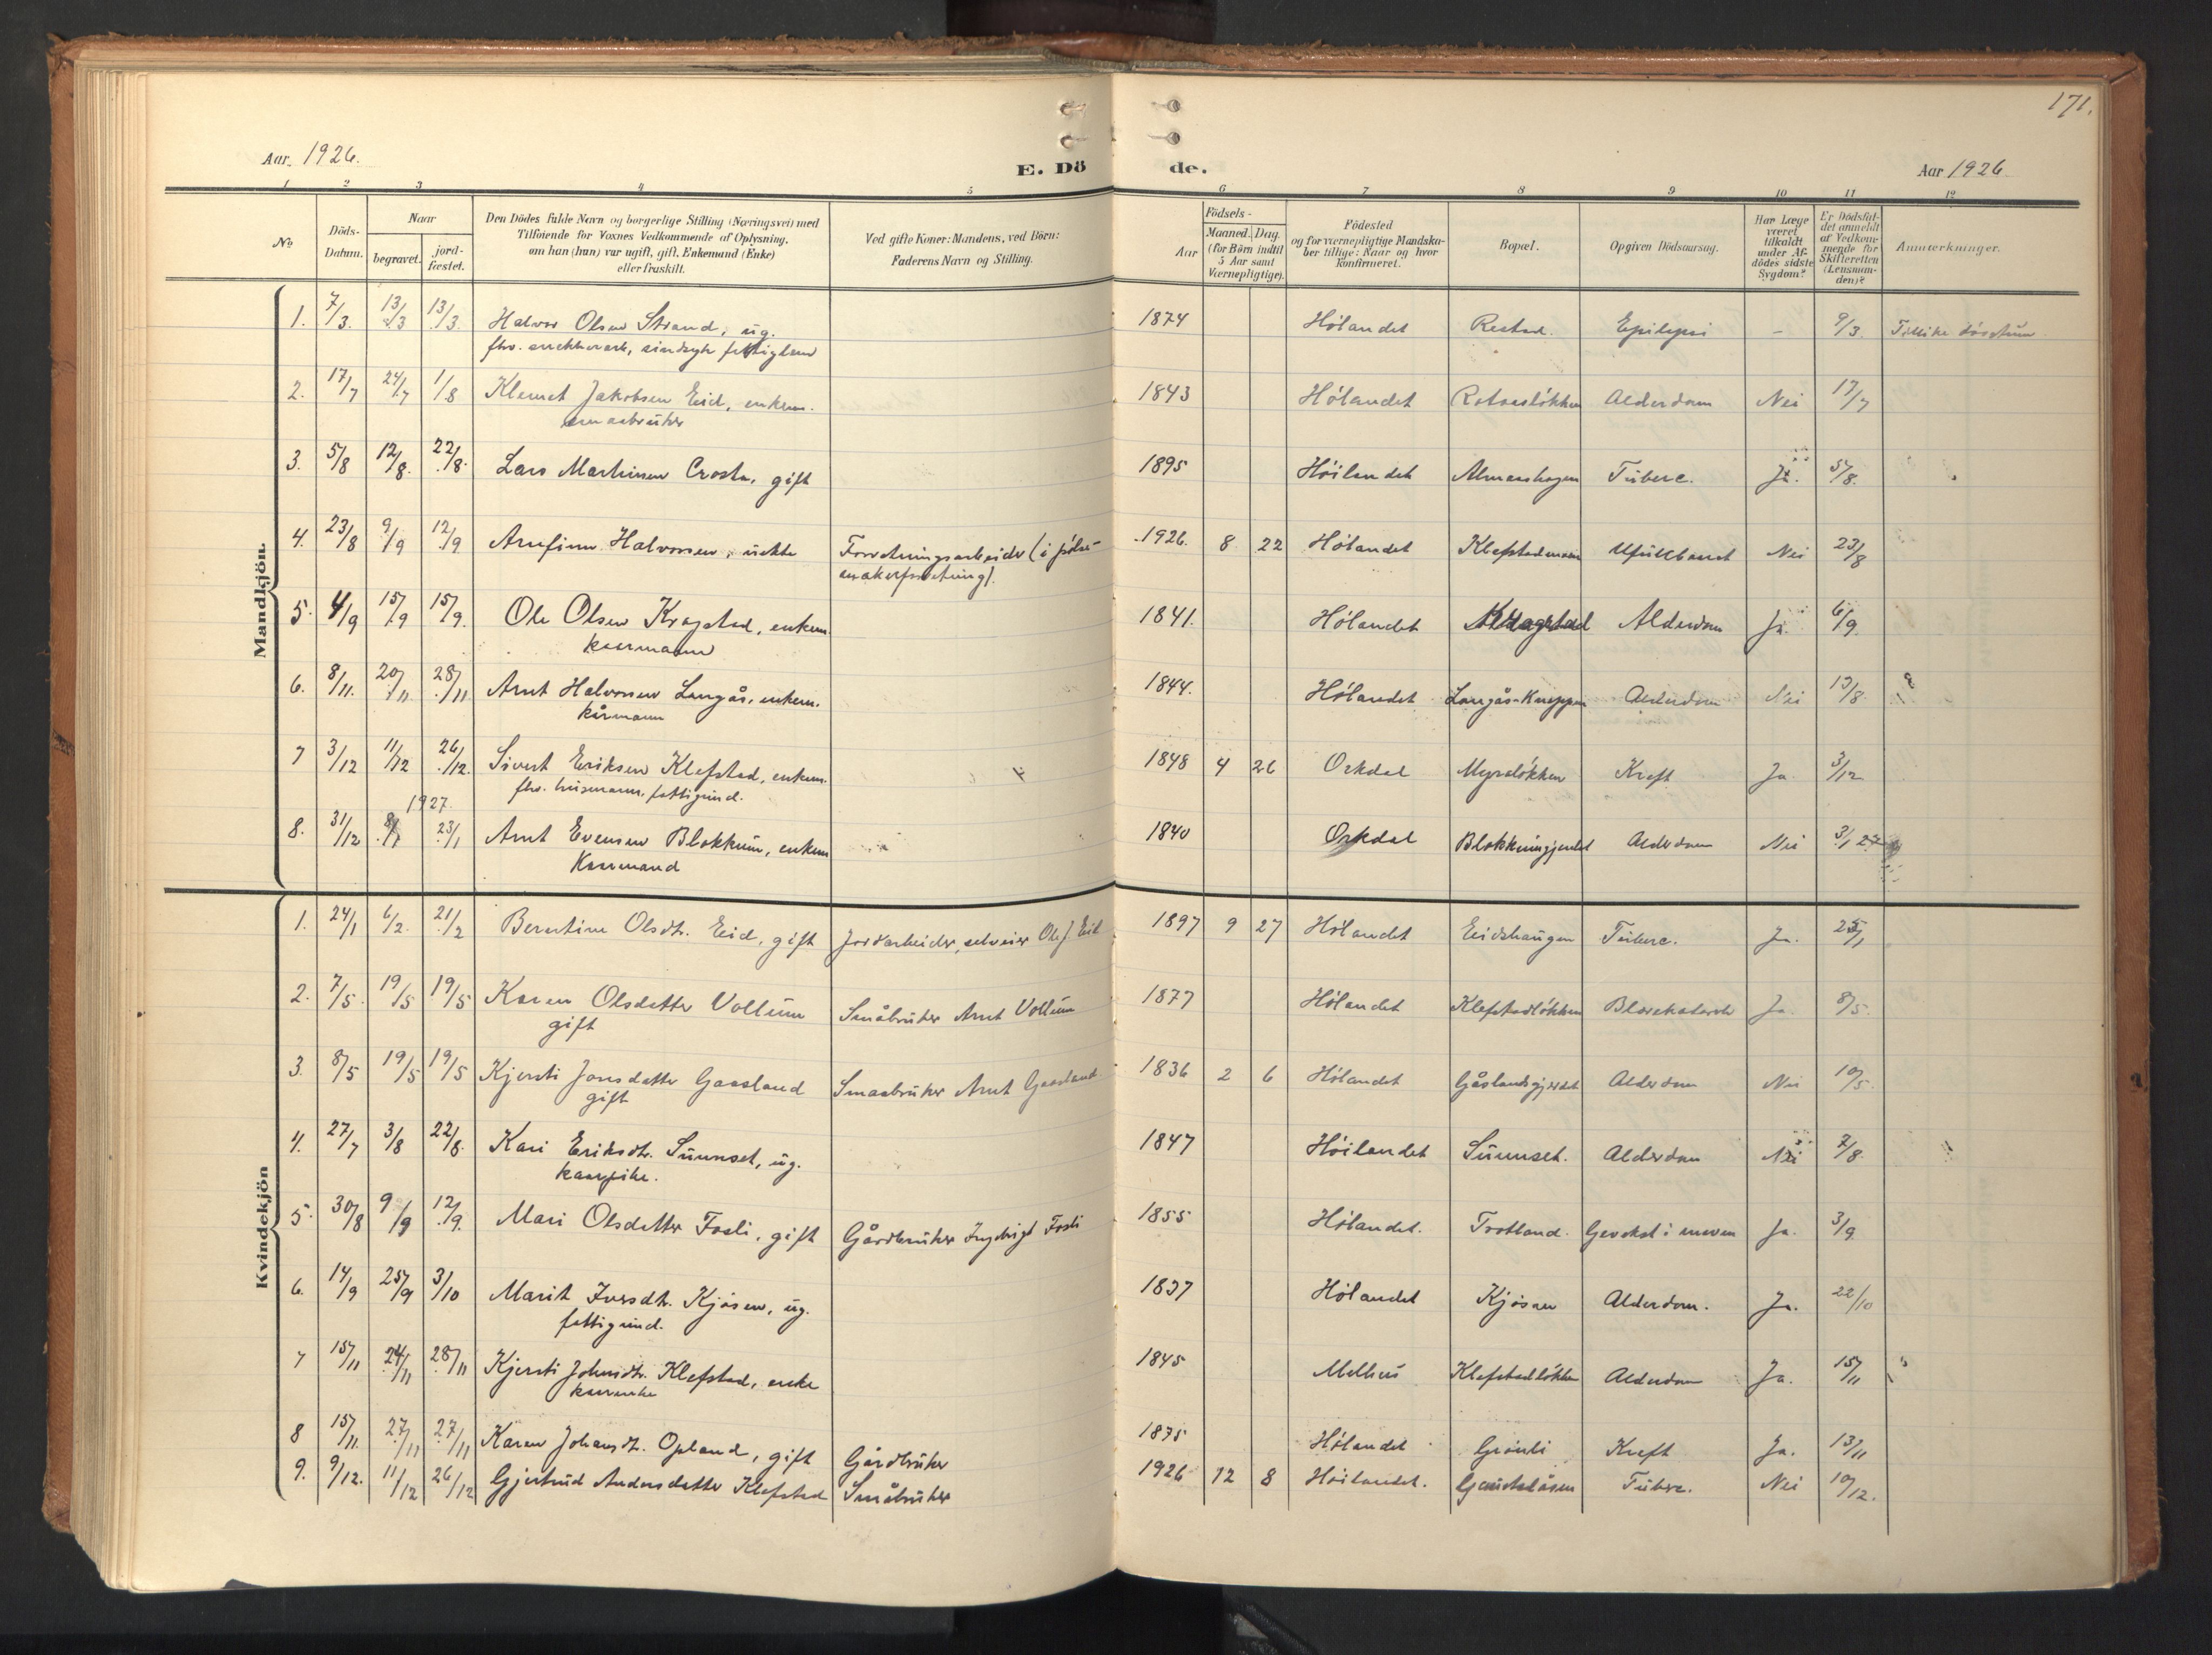 171.
Aar 1926.
E. Dö de.
Aar 1926
1 2 3 4 5 6 7 8 9 10 11 12
No
Döds-Datum.
Naar
begravet.
jord-fæstet.
Den Dödes fulde Navn og borgerlige Stilling (Næringsvei) med
Tilföiende for Voxnes Vedkommende af Oplysning,
om han (hun) var ugift, gift, Enkemand (Enke)
eller fraskilt.
Ved gifte Koner: Mandens, ved Börn:
Faderens Navn og Stilling.
Födsels-
Aar
Maaned. Dag.
(for Börn indtil
5 Aar samt
Værnepligtige).
Födested
og for værnepligtige Mandska-
ber tillige: Naar og hvor
Konfirmeret.
Bopæl.
Opgiven Dödsaarsag.
Har Læge
været
tilkaldt
under Af-
dödes sidste
Sygdom?
Er Dödsfal-
det anmeldt
af Vedkom-
mende for
Skifteretten
(Lensman-
den)?
Anmærkninger.
Mandkjön.
1. 7/3. 13/3 13/3. Halvor Olsen Strand, ug. 1874 Hølandet Restad. Epilepsi - 9/3.
fhv. sindsyk fattiglem
2. 17/7 24/7 1/8 Klemet Jakobsen Eid, enkem. 1843 Hølandet Alderdom Nei 17/7
smaabruker
3. 5/8 12/8. 22/8. Lars Martinsen Crosta, gift 1895 Höilandet Almaashagen Tuberc. Ja. 5/8.
4. 23/8 9/9 12/9 Arnfinn Halvorsen, uekte Forretningsarbeider (i pølse- 1926. 8 22 Hølandet Klefstadmoen Ufuldbaaret Nei 23/8
makerforretning).
5. 4/9 15/9 15/9. Ole Olsen Kragstad, enkem 1841. Hølandet Kragstad Alderdom Ja. 6/9.
kaarmann
6. 8/11. 20/11 28/11 Arnt Halvorsen Langås, enkem. 1844. Hølandet Langås-Knyppen Alderdom Nei 13/8.
kårmann
7 3/12 11/12 26/12. Sivert Eriksen Klefstad, enkem. 1848 4 26 Orkdal Myrsløkken Kreft Ja 3/12
fhv. husmann, fattigund.
1927.
8. 31/12 8/1 23/1 Arnt Evensen Blokkum, enkem 1840 Orkdal Blokkumgjerdet Alderdom Nei 3/1 27
Kaarmand
Kvindekjön
1. 24/1 6/2. 21/2 Berntine Olsdt. Eid, gift Jordarbeider, selveier Ole J. Eid 1897 9 27 Hølandet Eidshaugen Tuberc. Ja. 25/1
2. 7/5. 19/5 19/5 Karen Olsdatter Vollum Småbruker Arnt Vollum 1877 Hølandet Klefstadløkken Blærekatarrh Ja. 8/5.
gift
3. 8/5 19/5 19/5 Kjersti Jonsdatter Gaasland Smaabruker Arnt Gaasland 1836 2 6 Hølandet Gåslandsgjerdet Alderdom Nei 10/5.
gift
4. 27/7 3/8 22/8. Kari Eriksdt. Sumnset, ug. 1847 Höilandet Sumnset. Alderdom Nei 7/8
kaarpike.
5. 30/8 9/9 12/9. Mari Olsdatter Fosli, gift Gårdbruker Ingebrigt Fosli 1855 Hølandet. Trotland. Gevekst i maven Ja. 3/9
6. 14/9 25/9 3/10 Marit Iversdt. Kjøsen, ug. 1837 Hølandet Kjøsen Alderdom. Ja. 22/10
fattigund.
7 15/11 24/11 28/11 Kjersti Johnsdt. Klefstad, enke 1845 Melhus Klefstadløkken Alderdom Ja. 15/11
kaarenke
8 15/11. 27/11 27/11 Karen Johansdt. Opland, gift Gårdbruker 1875 Hølandet Grønli Kreft Ja. 13/11
9. 9/12. 11/12 26/12 Gjertrud Andersdatter Klefstad Småbruker 1926 12 8 Höilandet. Tuberc. Nei 10/12.